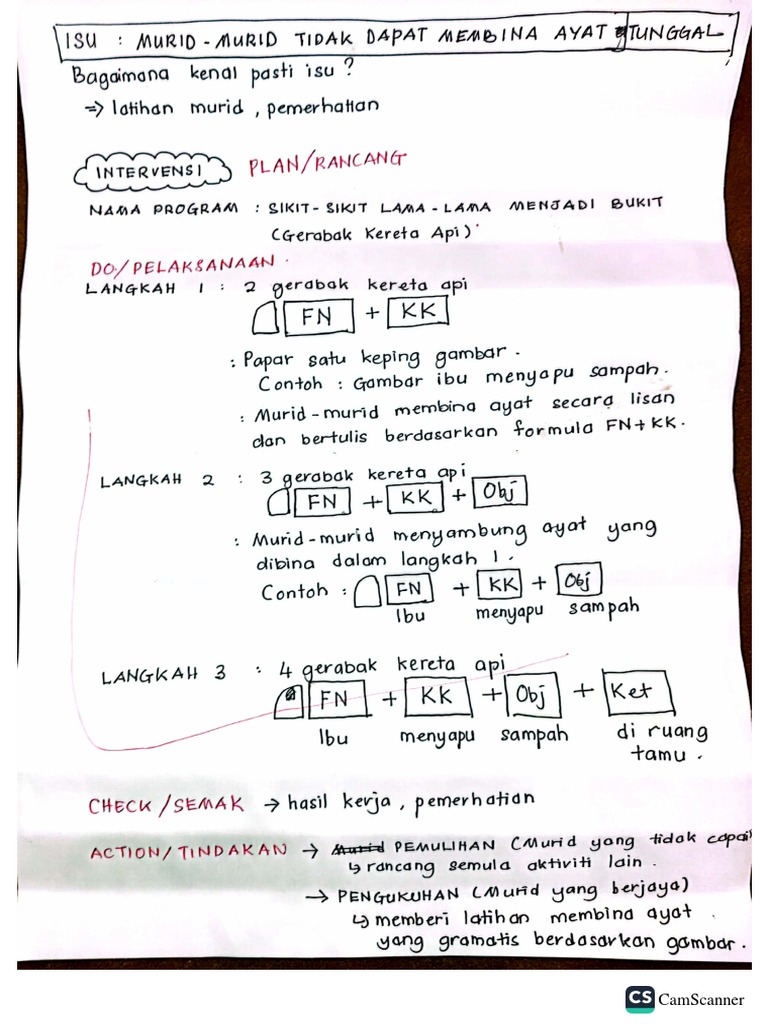 ISU : MURID-MURID TIDAK DAPAT MEMBINA AYAT TUNGGAL
Bagaimana kenal pasti isu?
⇒ latihan murid, pemerhatian
INTERVENSI PLAN/RANCANG
NAMA PROGRAM : SIKIT-SIKIT LAMA-LAMA MENJADI BUKIT
(Gerabak Kereta Api)
DO/PELAKSANAAN.
LANGKAH 1 : 2 gerabak kereta api
FN + KK
: Papar satu keping gambar.
Contoh : Gambar ibu menyapu sampah.
: Murid-murid membina ayat secara lisan
dan bertulis berdasarkan formula FN+KK.
LANGKAH 2 : 3 gerabak kereta api
FN + KK + Obj
: Murid-murid menyambung ayat yang
dibina dalam langkah 1.
Contoh : FN + KK + Obj
Ibu menyapu sampah
LANGKAH 3 : 4 gerabak kereta api
FN + KK + Obj + Ket
Ibu menyapu sampah di ruang
tamu.
CHECK/SEMAK → hasil kerja, pemerhatian
ACTION/TINDAKAN → Murid PEMULIHAN (Murid yang tidak capai
↳ rancang semula aktiviti lain.
→ PENGUKUHAN (Murid yang berjaya)
↳ memberi latihan membina ayat
yang gramatis berdasarkan gambar.
CS CamScanner